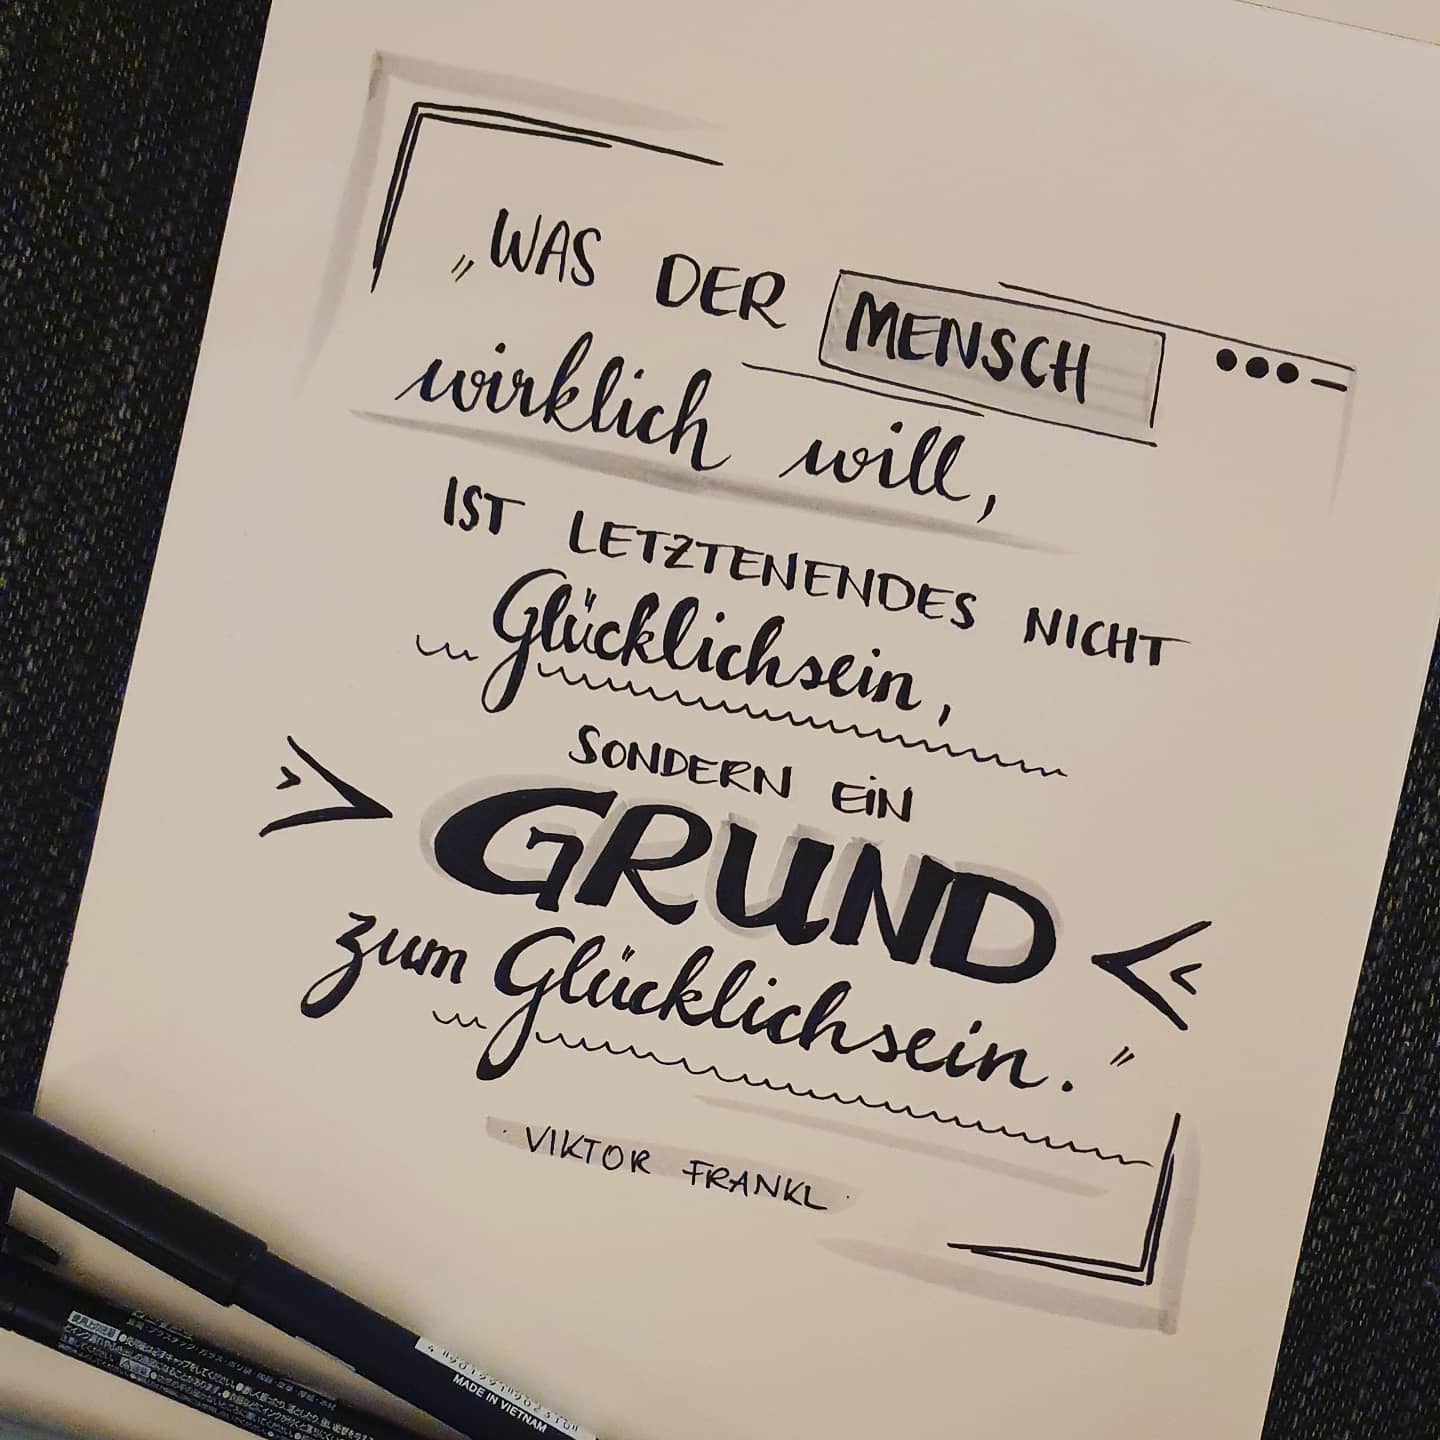 „WAS DER MENSCH
wirklich will,
IST LETZTENENDES NICHT
Glücklichsein,
SONDERN EiN
GRUND
zum Glücklichsein."
· VIKTOR FRANKL ·
MADE IN VIETNAM